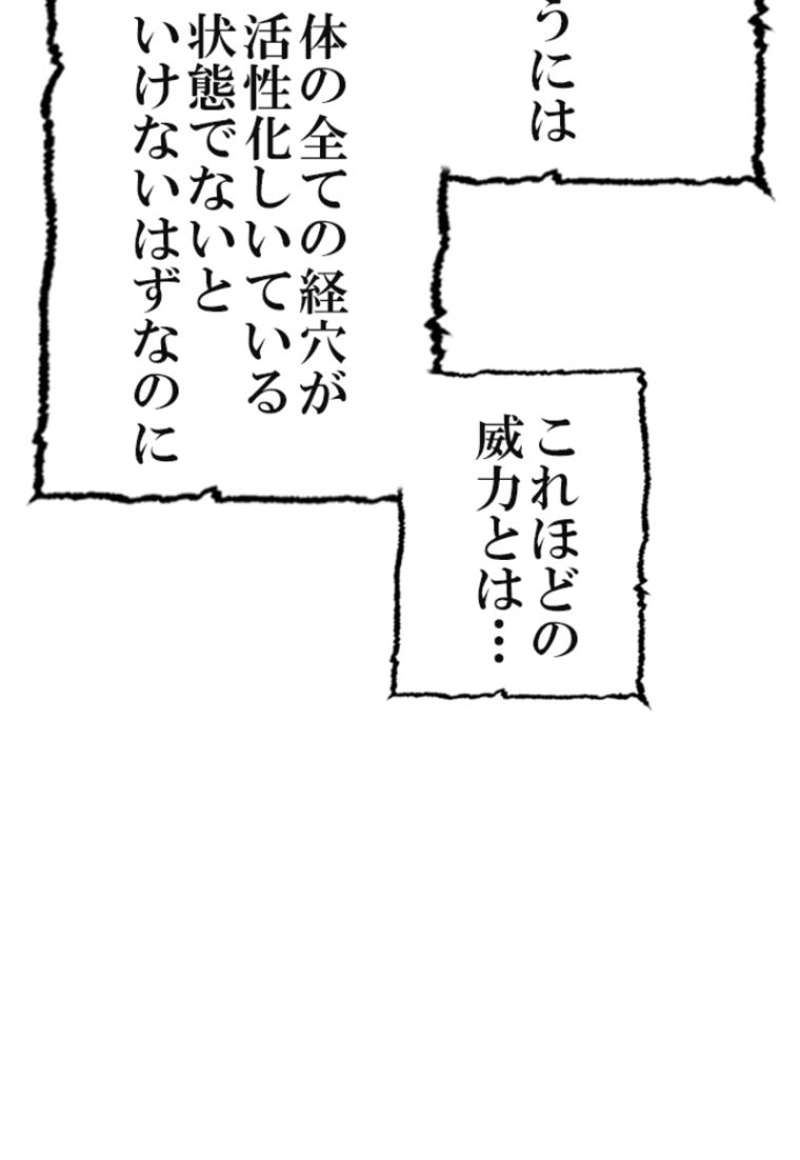 うには
体の全ての経穴が
活性化しいている
状態でないと
いけないはずなのに
これほどの
威力とは…